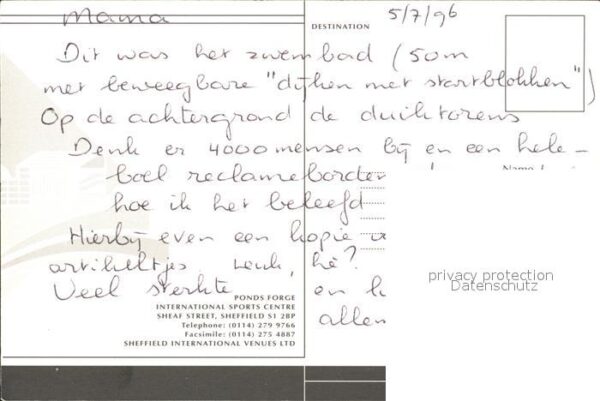 Mama
DESTINATION
5/7/96
Dit was het zwembad (50m
met beweegbare "dijken met startblokken")
Op de achtergrond de duiktorens
Denk er 4000 mensen bij en een hele-
boel reclameborden
hoe ik het beleefd
Hierbij even een kopie
artikeltjes Leuk, hè?
Veel sterkte en
allen
PONDS FORGE
INTERNATIONAL SPORTS CENTRE
SHEAF STREET, SHEFFIELD S1 2BP
Telephone: (0114) 279 9766
Facsimile: (0114) 275 4887
SHEFFIELD INTERNATIONAL VENUES LTD
privacy protection
Datenschutz